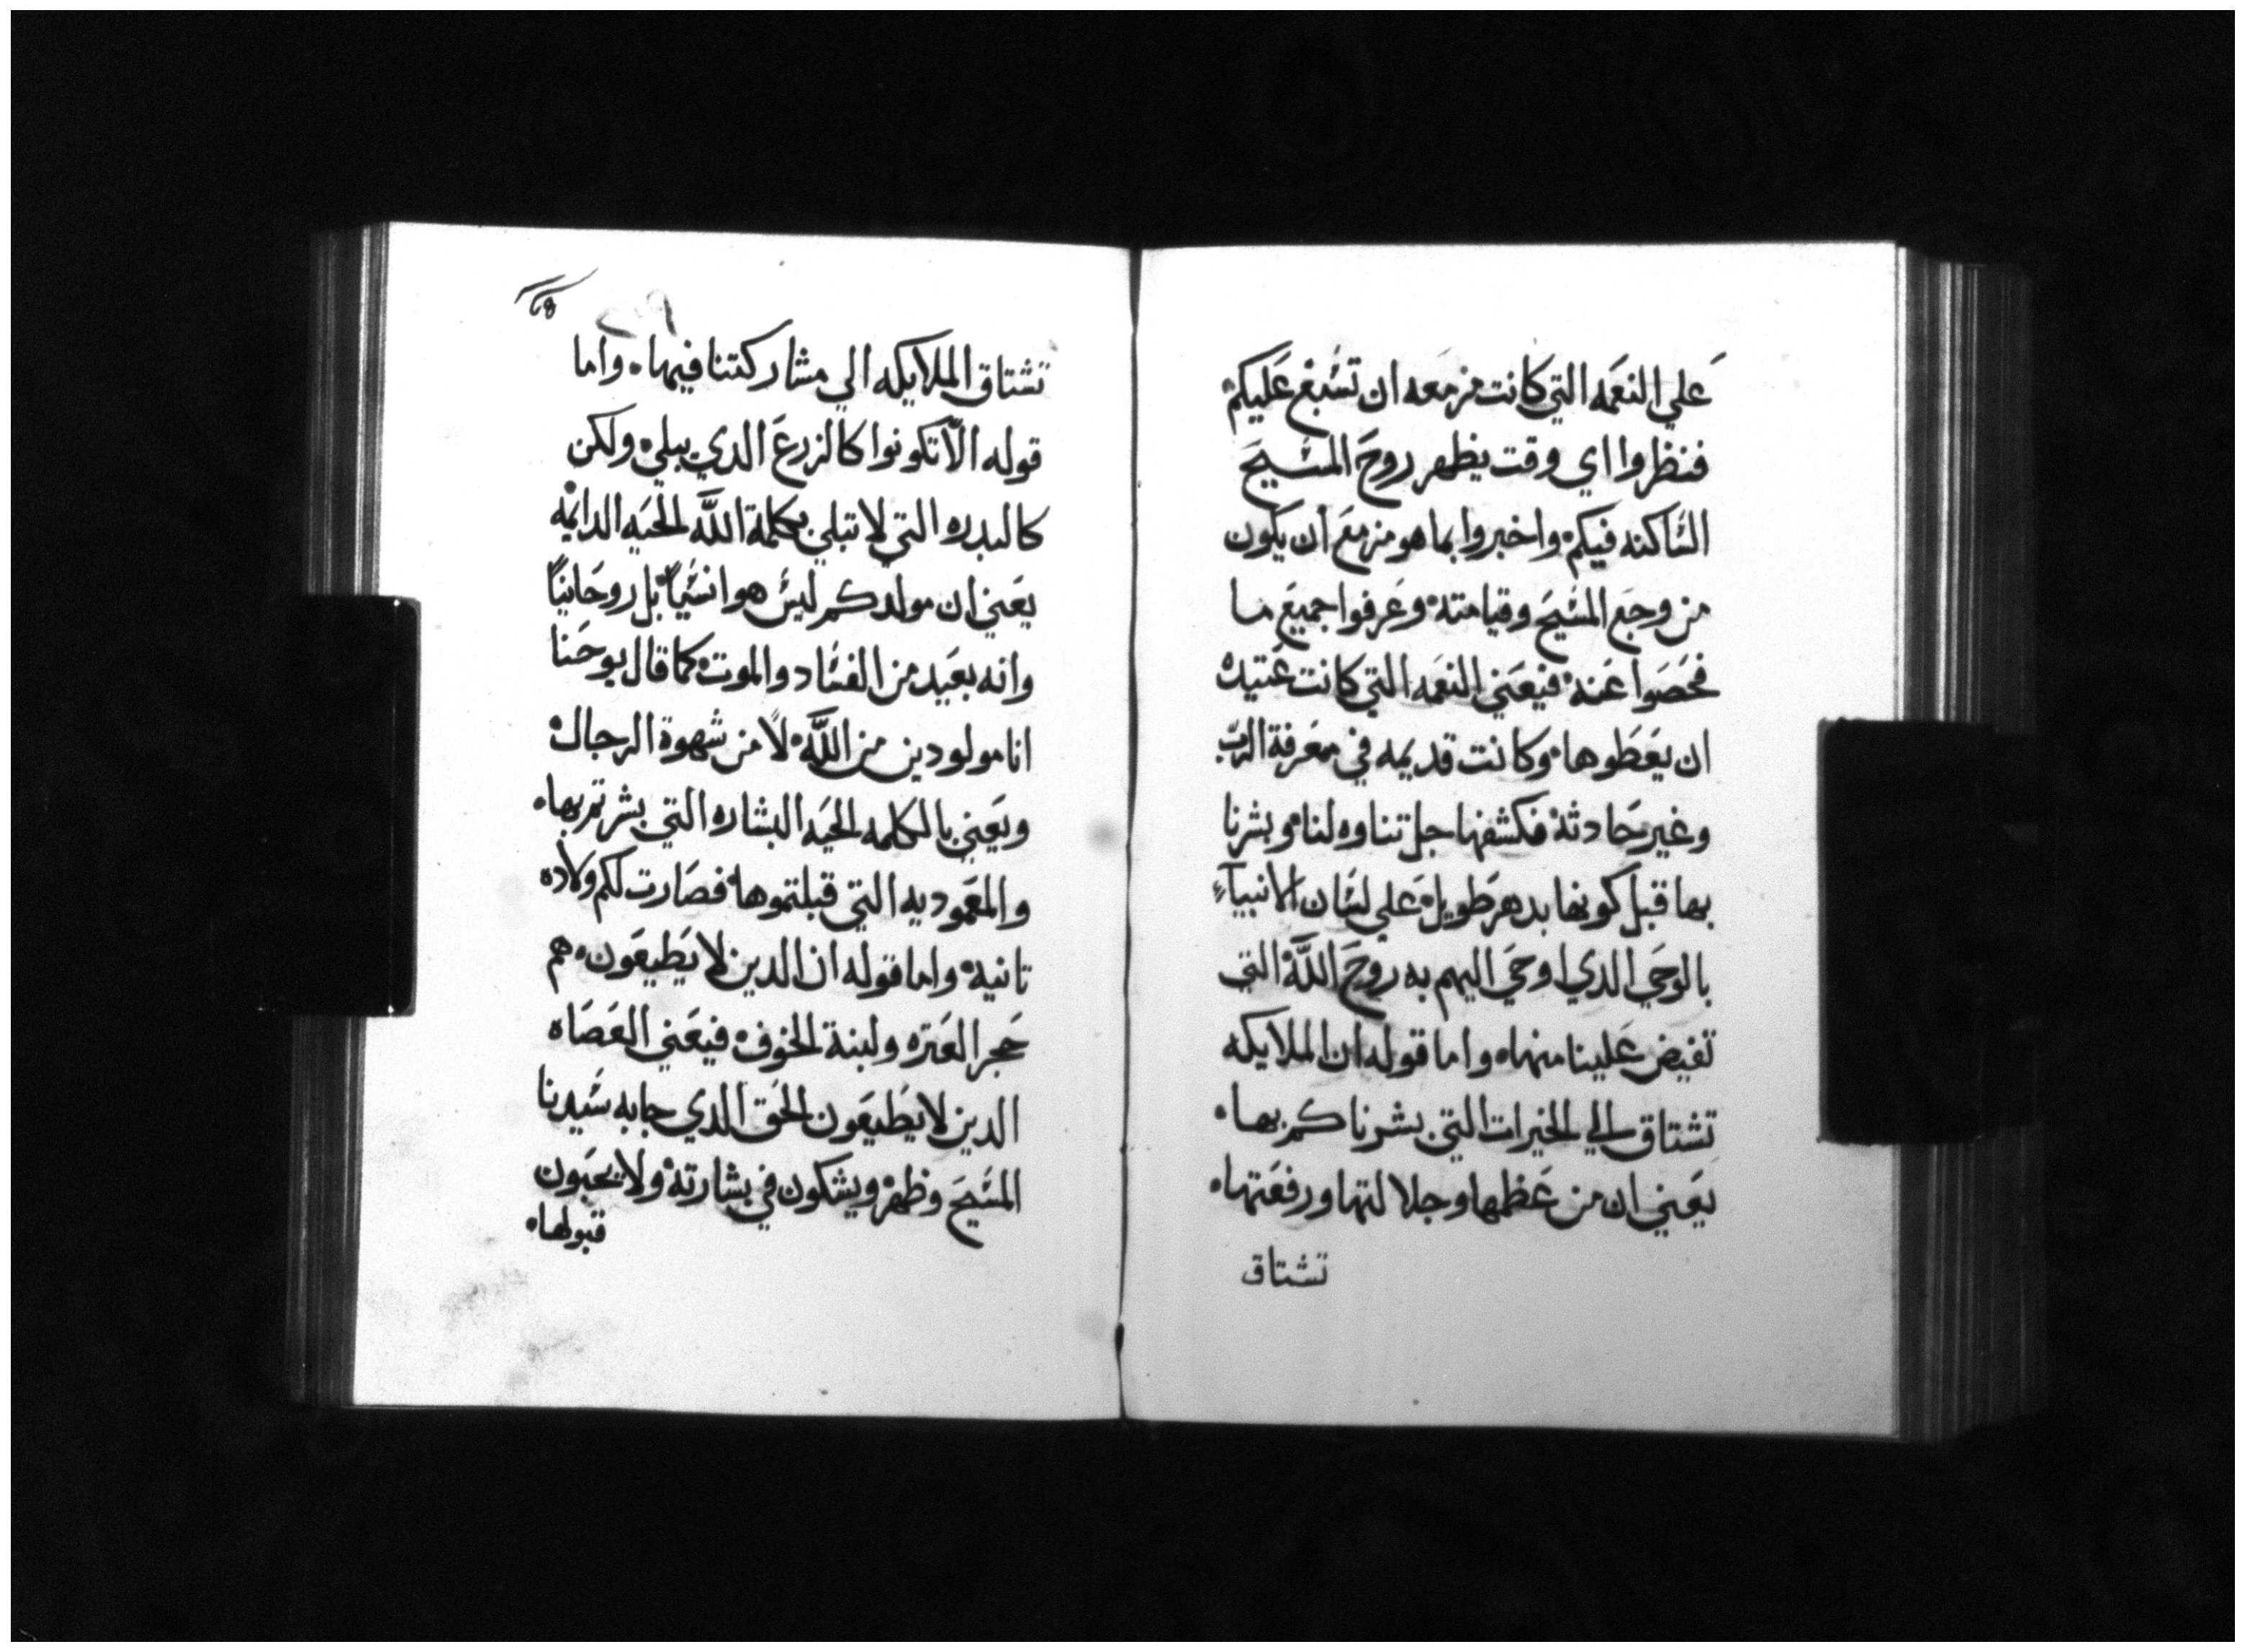 علي النعمه التي كانت مزمعه ان تسبغ عليكم
فنظروا اي وقت يظهر روح المسيح
الساكنه فيكم واخبروا بما هو مزمع ان يكون
من وجع المسيح وقيامته وعرفوا جميع ما
فحصوا عنه فيعني النعمه التي كانت عتيده
ان يعطوها وكانت قديمه في معرفة الرب
وغير حادثه فكشفها جل تناوه لنا وبشرنا
بها قبل كونها بدهر طويل علي لسان الانبيآء
بالوحي الدي اوحي اليهم به روح اللَّه التي
تفيض علينا منها۰ واما قوله ان الملايكه
تشتاق الي الخيرات التي بشرناكم بها۰
يعني ان من عظمها وجلالتها ورفعتها۰
تشتاق
تشتاق الملايكه الي مشاركتنا فيها۰ واما
قوله الّا تكونوا كالزرع الدي يبلي ولكن
كالبدره التي لا تبلي بكلمة اللَّه الحيه الدايمه
يعني ان مولدكم ليس هو انسياً بل روحانياً
وانه بعيد من الفساد والموت كما قال يوحنا
انا مولودين من اللَّه لا من شهوة الرجال
ويعني بالكلمه الحيه البشاره التي بشرتم بها۰
والمعموديه التي قبلتموها فصارت لكم ولاده
تانيه واما قوله ان الدين لا يطيعون هم
حجر العتره ولبنة الخوف فيعني العصاه
الدين لا يطيعون الحق الدي جا به سيدنا
المسيح وظهر ويشكون في بشارته ولا يحبون
قبولها۰